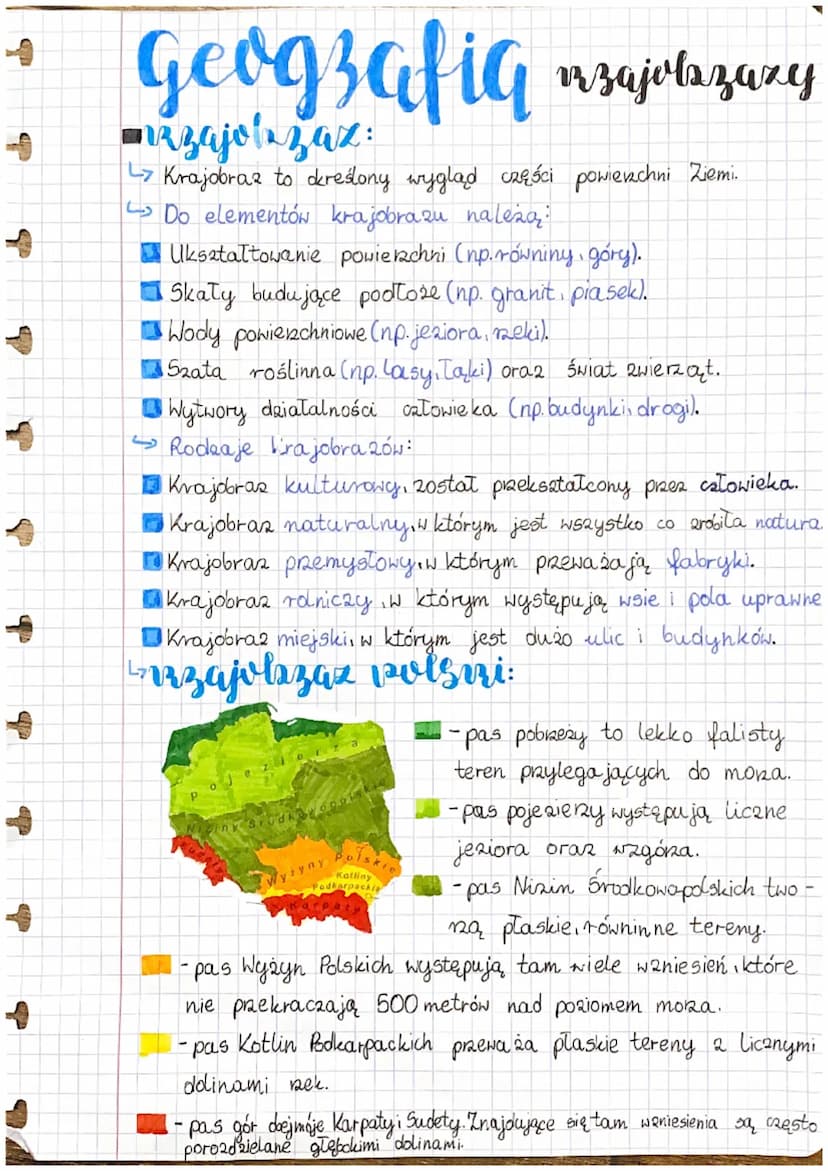 Geografia krajobrazy
krajobraz:
↳ Krajobraz to określony wygląd części powierzchni Ziemi.
↳ Do elementów krajobrazu należą:
Ukształtowanie powierzchni (np. równiny, góry).
Skały budujące podłoże (np. granit, piasek).
Wody powierzchniowe (np. jeziora, rzeki).
Szata roślinna (np. lasy, łąki) oraz świat zwierząt.
Wytwory działalności człowieka (np. budynki, drogi).
↳ Rodzaje krajobrazów:
Krajobraz kulturowy, został przekształcony przez człowieka.
Krajobraz naturalny, w którym jest wszystko co zrobiła natura.
Krajobraz przemysłowy, w którym przeważają fabryki.
Krajobraz rolniczy, w którym występują wsie i pola uprawne
Krajobraz miejski, w którym jest dużo ulic i budynków.
↳ krajobraz polski:
pojezierza
Niziny Środkowopolskie
Sudety
Wyżyny Polskie
Kotliny
Podkarpackie
Karpaty
- pas pobrzeży to lekko falisty
teren przylegających do morza.
- pas pojezierzy występują liczne
jeziora oraz wzgórza.
- pas Nizin Środkowopolskich two-
rzą płaskie, równinne tereny.
- pas Wyżyn Polskich występują tam wiele wzniesień, które
nie przekraczają 500 metrów nad poziomem morza.
- pas Kotlin Podkarpackich przeważa płaskie tereny z licznymi
dolinami rzek.
- pas gór obejmóje Karpaty i Sudety. Znajdujące się tam wzniesienia są często
porozdzielane głębokimi dolinami.